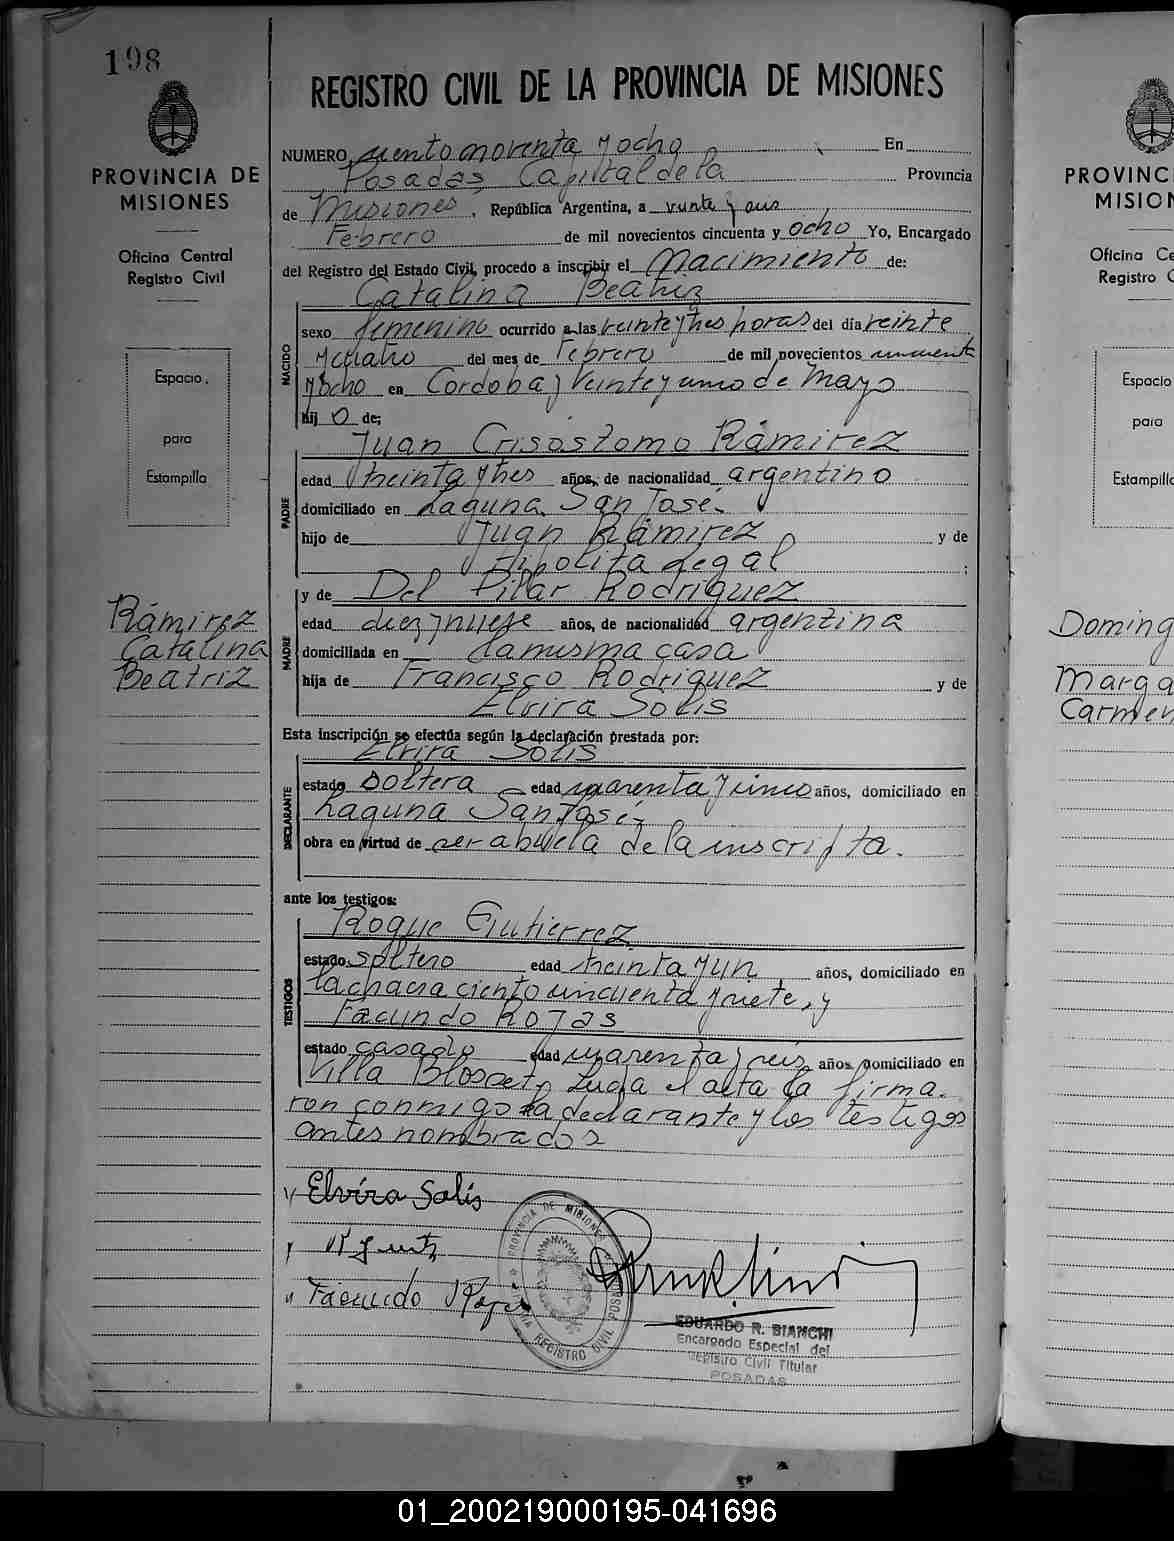 198
PROVINCIA DE
MISIONES
Oficina Central
Registro Civil
Espacio
para
Estampilla
Rámirez
Catalina
Beatriz
REGISTRO CIVIL DE LA PROVINCIA DE MISIONES
NUMERO ciento noventa y ocho En
Posadas, Capital de la Provincia
de Misiones, República Argentina, a veinte y seis
Febrero de mil novecientos cincuenta y ocho Yo, Encargado
del Registro del Estado Civil, procedo a inscribir el Nacimiento de:
Catalina Beatriz
NACIDO
sexo femenino ocurrido a las veinte y tres horas del día veinte
y cuatro del mes de Febrero de mil novecientos cincuenta
y ocho en Cordoba y Veinte y uno de Mayo
hij o de;
Juan Crisóstomo Rámirez
PADRE
edad treinta y tres años, de nacionalidad argentino
domiciliado en Laguna San José.
hijo de Juan Rámirez y de
Hipolita Legal ;
y de Del Pilar Rodriguez
MADRE
edad diez y nueve años, de nacionalidad argentina
domiciliada en la misma casa
hija de Francisco Rodriguez y de
Elvira Solis
Esta inscripción se efectúa según la declaración prestada por:
Elvira Solis
DECLARANTE
estado soltera edad cuarenta y cinco años, domiciliado en
Laguna San José,
obra en virtud de ser abuela de la inscripta.
ante los testigos:
Roque Gutierrez
TESTIGOS
estado soltero edad treinta y un años, domiciliado en
la chacra ciento cincuenta y siete, y
Facundo Rojas
estado casado edad cuarenta y seis años domiciliado en
Villa Blosset, Leida el acta la firma
ron conmigo la declarante y los testigos
antes nombrados
Elvira Solis
Facundo Rojas
PROVINCIA DE MISIONES
REGISTRO CIVIL
EDUARDO R. BIANCHI
Encargado Especial del
Registro Civil Titular
POSADAS
PROVINC
MISION
Oficina Ce
Registro C
Espacio
para
Estampilla
Doming
Marga
Carmen
01_200219000195-041696